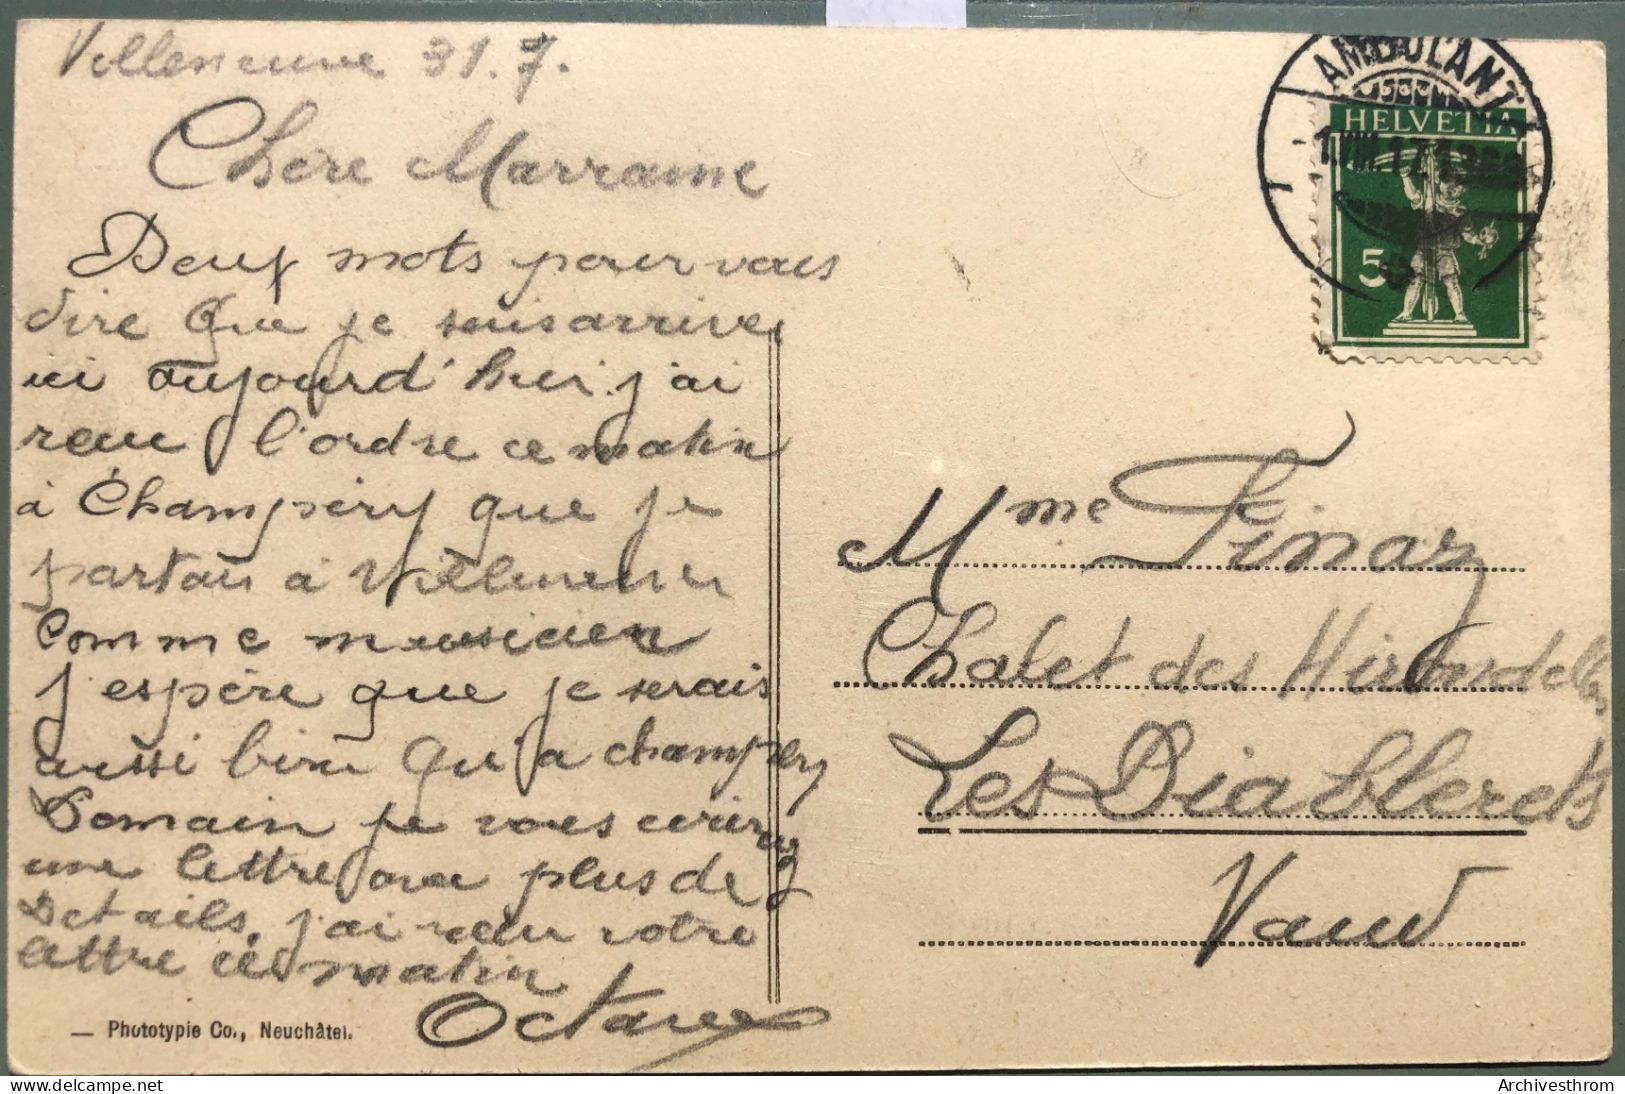 Villeneuve 31.7.
Chère Marraine
Deux mots pour vous
dire que je suis arrive
ici aujourd'hui j'ai
recu l'ordre ce matin
à Champéry que je
partais à Villeneuve
comme musicien
j'espère que je serais
aussi bien qu'a champéry
Domain je vous ecrirez
une lettre avec plus de
Details, j'ai recu votre
lettre ce matin
Octave
— Phototypie Co., Neuchâtel.
AMBULANT
1.VIII.17.
HELVETIA
5
Mme Pinaz
Chalet des Hirondelles
Les Diablerets
Vaud
Archivesthrom